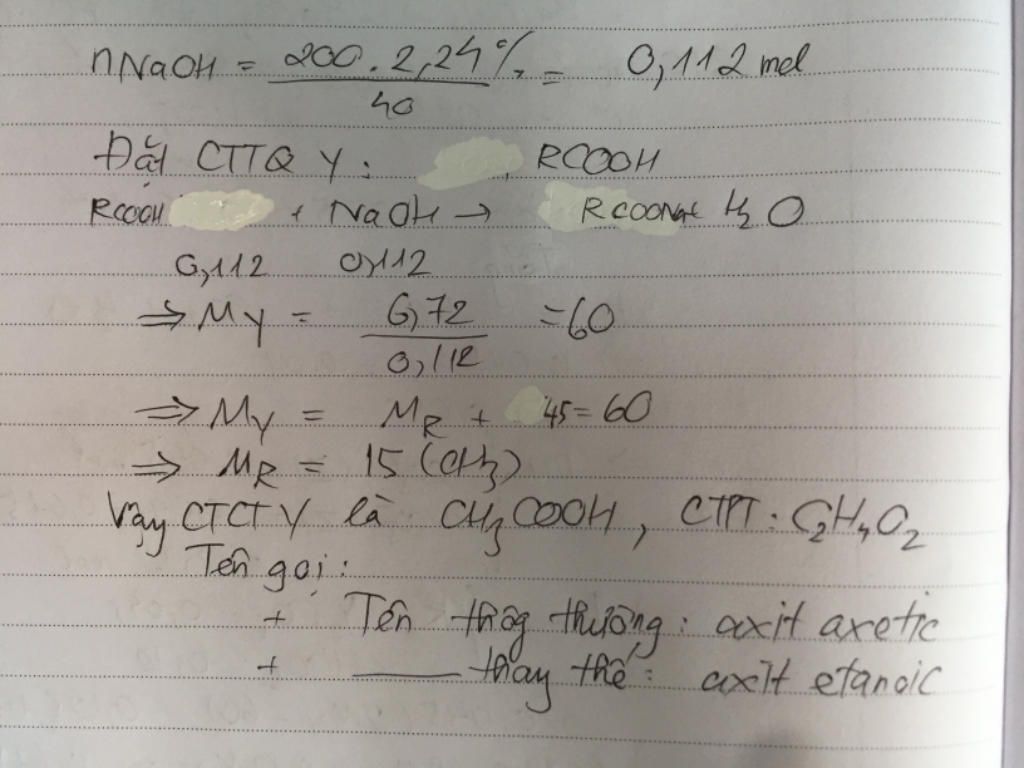 nNaOH = 200.2,24% / 40 = 0,112 mol
Đặt CTTQ Y: RCOOH
RCOOH + NaOH → RCOONa + H2O
0,112 0,112
⇒ MY = 6,72 / 0,112 = 60
⇒ MY = MR + 45 = 60
⇒ MR = 15 (CH3)
Vậy CTCT Y là CH3COOH, CTPT: C2H4O2
Tên gọi:
+ Tên thôg thường: axit axetic
+ —— thay thế: axit etanoic